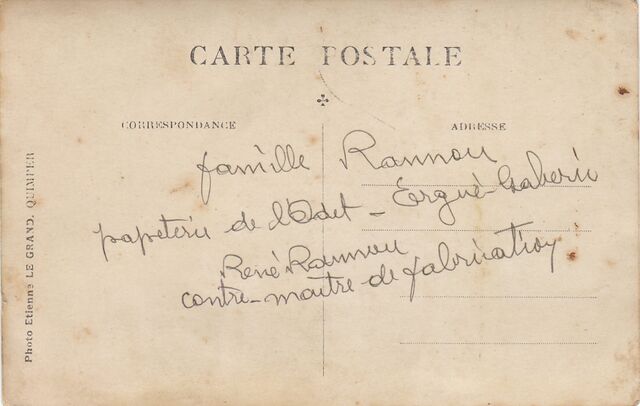 CARTE POSTALE
CORRESPONDANCE
ADRESSE
famille Rannou
papeterie de l'Odet - Ergué-Gabéric
René Rannou
contre-maître de fabrication
Photo Etienne LE GRAND, QUIMPER